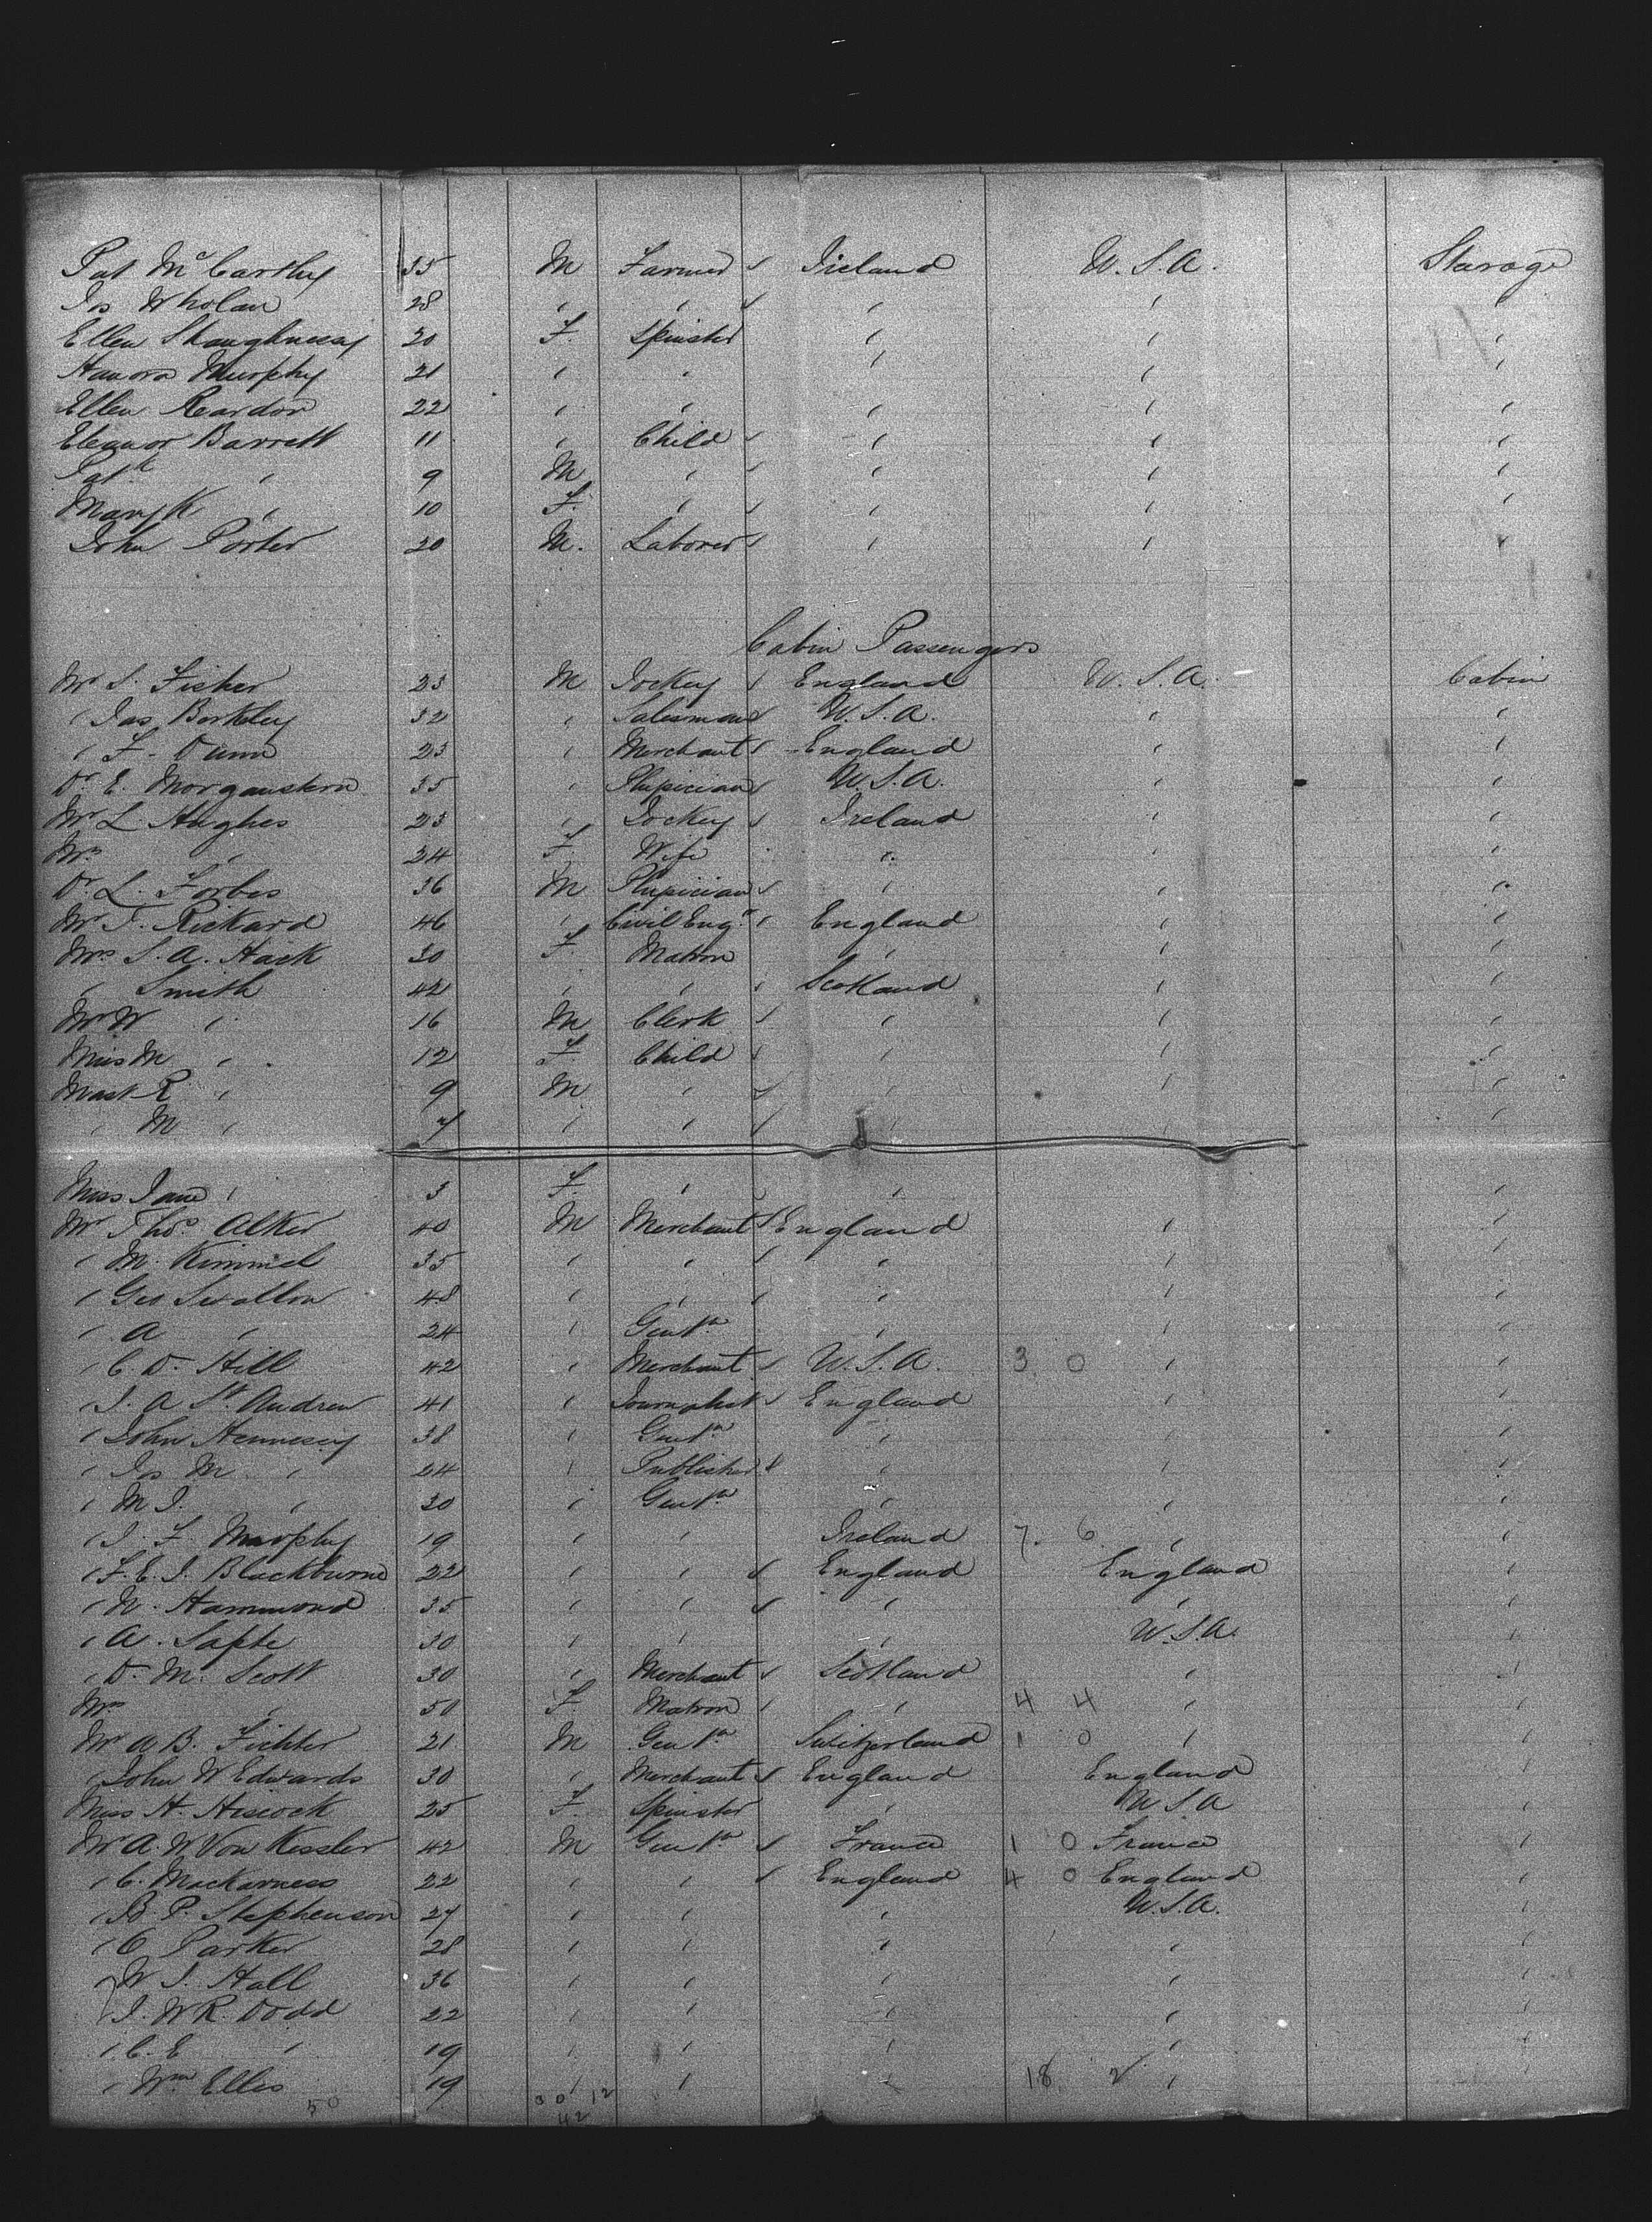 Pat McCarthy 35 M Farmer Ireland U.S.A. Starage
Jas Wholan 28 " " " " "
Ellen Shaughnessy 20 F. Spinster " " "
Hanora Murphy 21 " " " " "
Ellen Reardon 22 " " " " "
Eleanor Barrett 11 " Child " " "
Patk " 9 M " " " "
Mary K " 10 F. " " " "
John Porter 20 M. Laborer " " "
Cabin Passengers
Mr S. Fisher 23 M Jockey England U.S.A. Cabin
" Jas Berkeley 32 " Salesman U.S.A. " "
" F. Dunn 23 " Merchant England " "
Dr E. Morganstern 35 " Physician U.S.A. " "
Mr L. Hughes 23 " Jockey Ireland " "
Mrs " 24 F. Wife " " "
Dr. L. Forbes 36 M Physician " " "
Mr T. Rickard 46 " Civil Engr England " "
Mrs S. A. Hack 30 F. Matron " " "
" Smith 42 " " Scotland " "
Mr W " 16 M Clerk " " "
Miss M " 12 F Child " " "
Mast R " 9 M " " " "
" M " 7 " " " " "
Miss Jane " 3 F. " " "
Mr Thos. Alker 40 M Merchant England " "
" M. Kimmel 35 " " " " "
" Geo Swallow 48 " " " " "
" A " 24 " Gentn " " "
" C. D. Hill 42 " Merchant U.S.A. 3 0 " "
" J. A St. Andrew 41 " Journalist England " "
" John Hennesey 38 " Gentn " " "
" Jas M " 24 " Publisher " " "
" M J. " 30 " Gentn " " "
" J. F. Murphy 19 " " Ireland 7. 6. " "
" F. E. J. Blackburne 22 " " England England "
" W. Hammond 35 " " " " "
" A. Sapte 30 " " " U.S.A. "
" D. M. Scott 30 " Merchant Scotland " "
Mrs " 50 F. Matron " 4 4 " "
Mr A B. Fichter 21 M Gentn Switzerland 1 0 " "
" John W Edwards 30 " Merchant England England "
Miss H. Hiscock 25 F. Spinster " U.S.A "
Mr A. W. Von Kessler 42 M Gentn France 1 0 France "
" C. Mackarness 22 " " England 4 0 England "
" B. P. Stephenson 27 " " " U.S.A. "
" C Parker 28 " " " " "
" W J. Hall 36 " " " " "
" J. W R. Dodd 22 " " " " "
" C. E " 19 " " " " "
" Wm Ellis 19 " " " 18. 2 " "
50 30 12
42